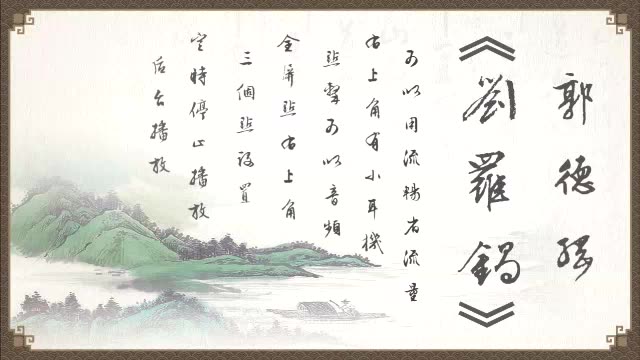 郭德綱
《劉羅鍋》
可以用流暢省流量
右上角有小耳機
點擊可以音頻
全屏點右上角
三個點設置
定時停止播放
后台播放